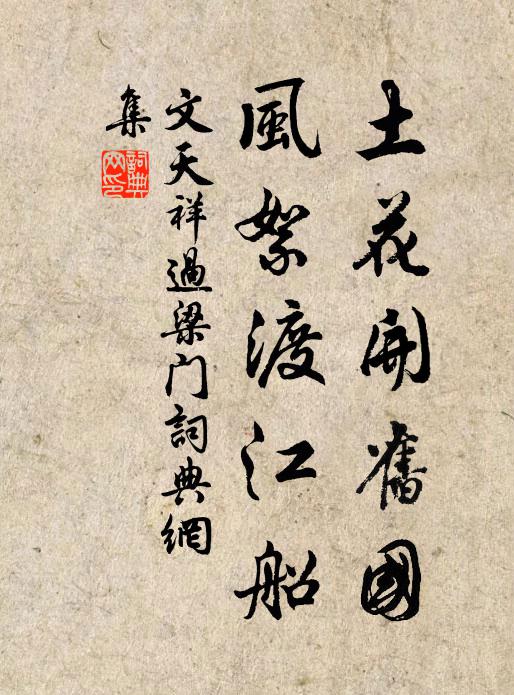 土花開舊國
風絮渡江船
文天祥過梁門詞典網
集
詞典
网印